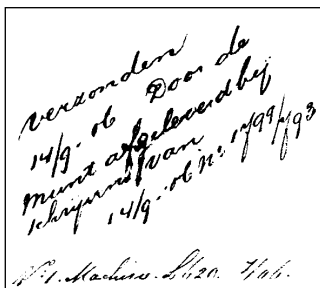 verzonden
14/9. 06 Door de
munt afgeleverd bij
schrijven van
14/9. 06 No 1799/793
No 1. Machine.